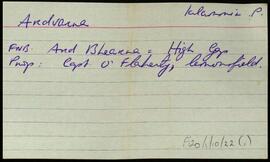 Kilcummin P.
Ardvarna
FNB: Ard Bhearna = High Gap
Prop: Capt O'Flaherty, Lemonfield.
F20/1/10/22 (1)